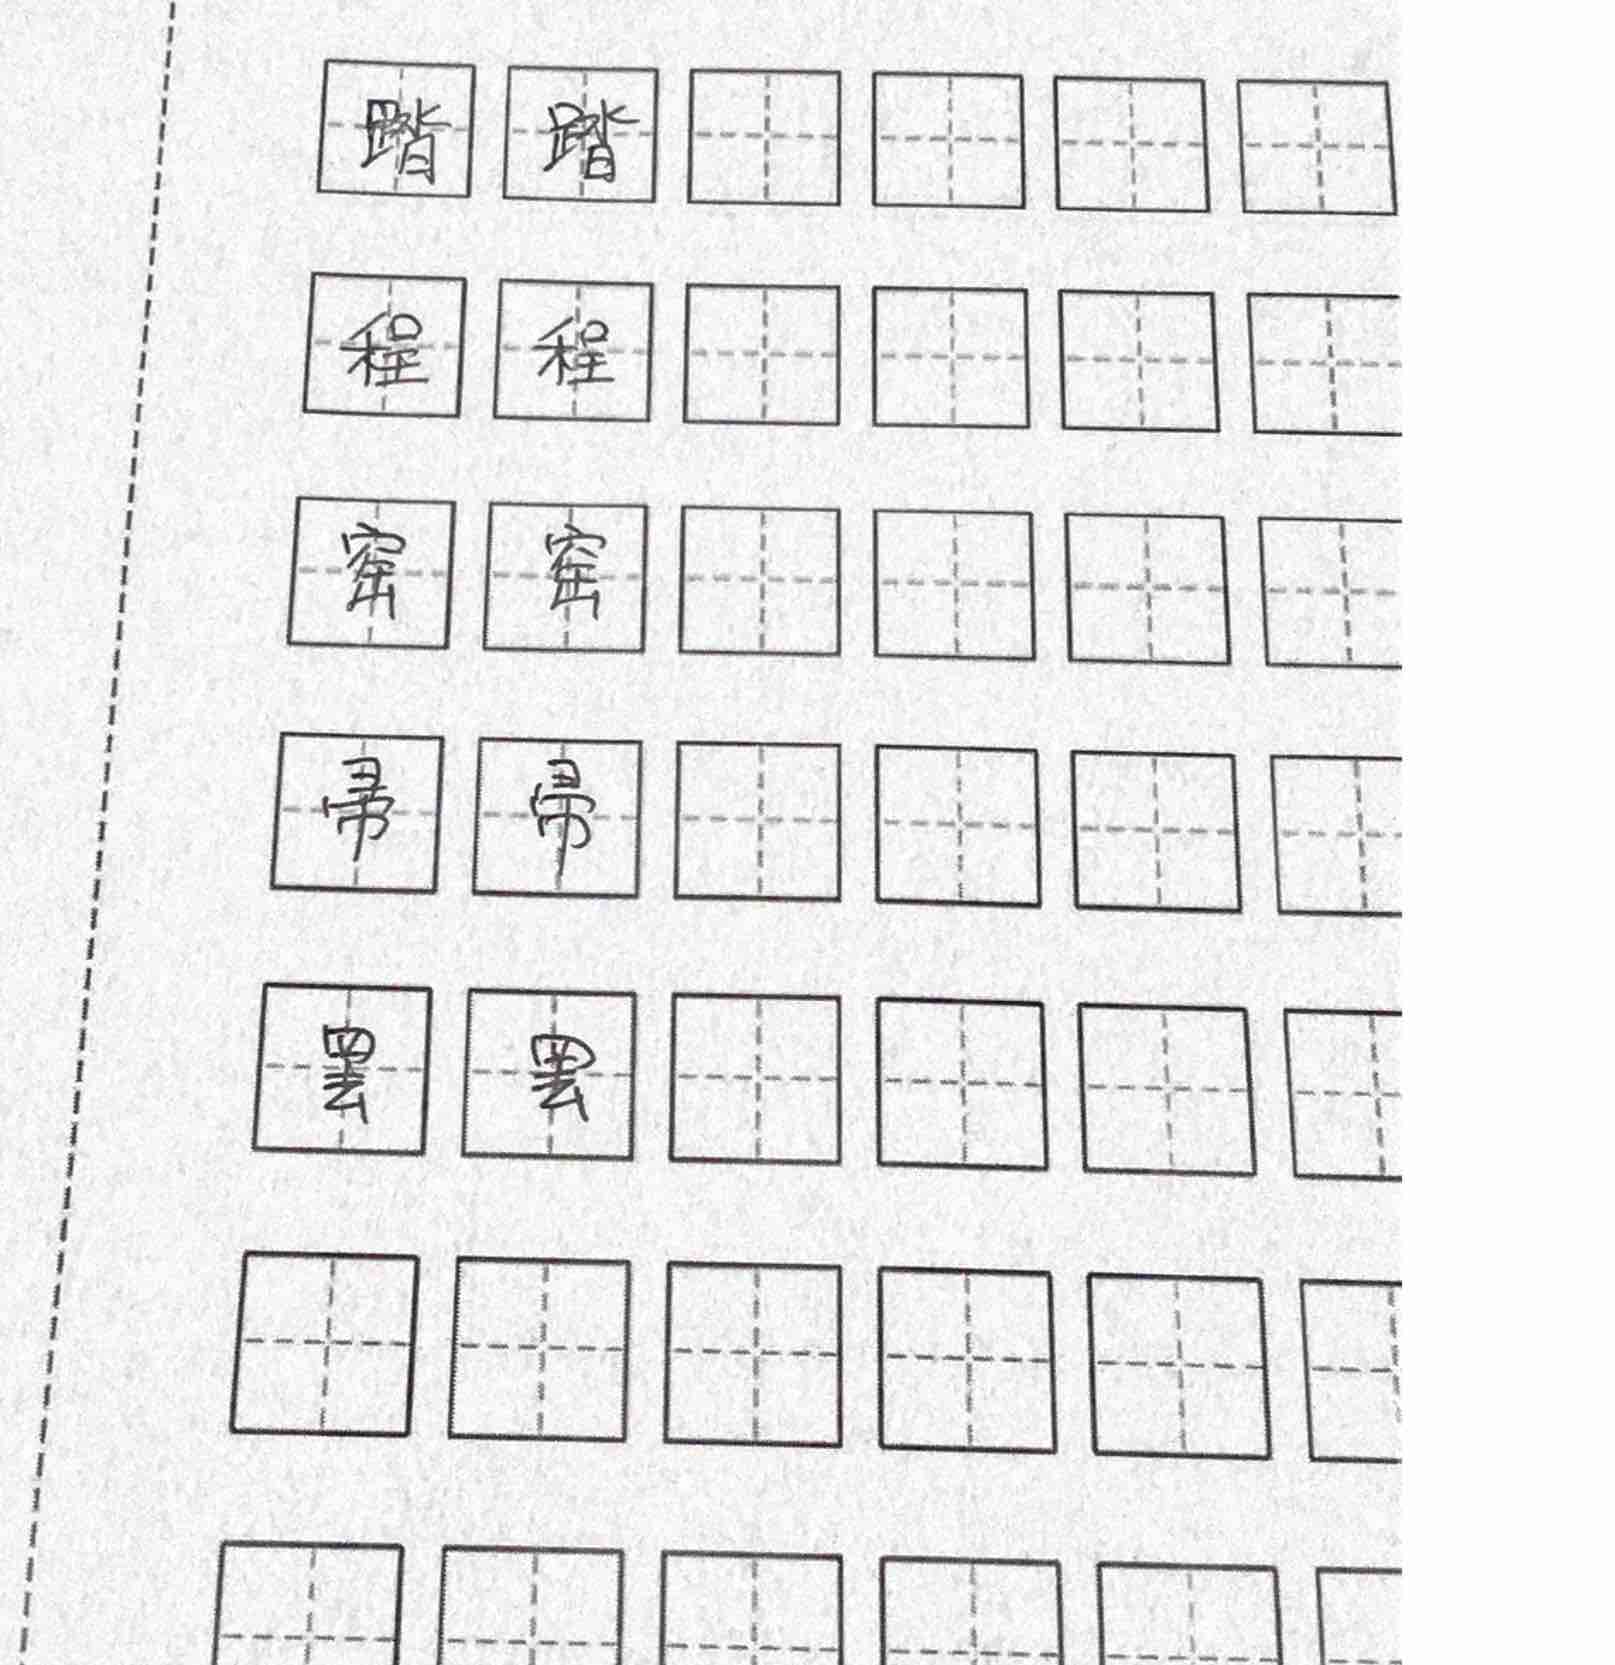 踏 踏
程 程
窑 窑
帚 帚
罢 罢